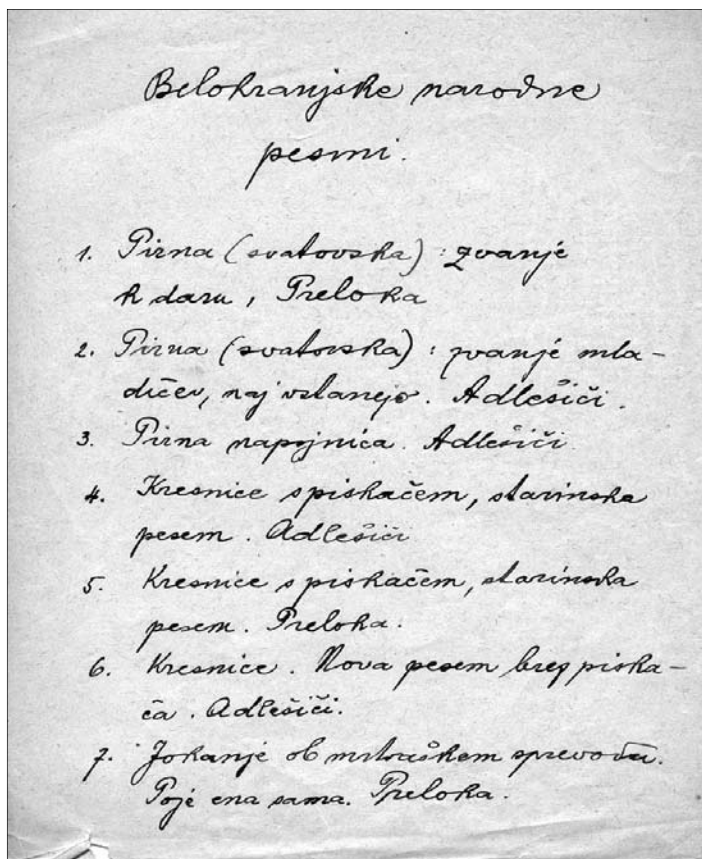 Belokranjske narodne
pesmi.
1. Pirna (svatovska): zvanje
k daru, Preloka
2. Pirna (svatovska): zvanje mla-
dićev, naj vstanejo. Adlešiči.
3. Pirna napojnica. Adlešiči
4. Kresnice s piskačem, starinska
pesem. Adlešiči
5. Kresnice s piskačem, starinska
pesem. Preloka.
6. Kresnice. Nova pesem brez piska-
ča. Adlešiči.
7. Jokanje ob mrtvaškem sprevodu.
Poje ena sama. Preloka.